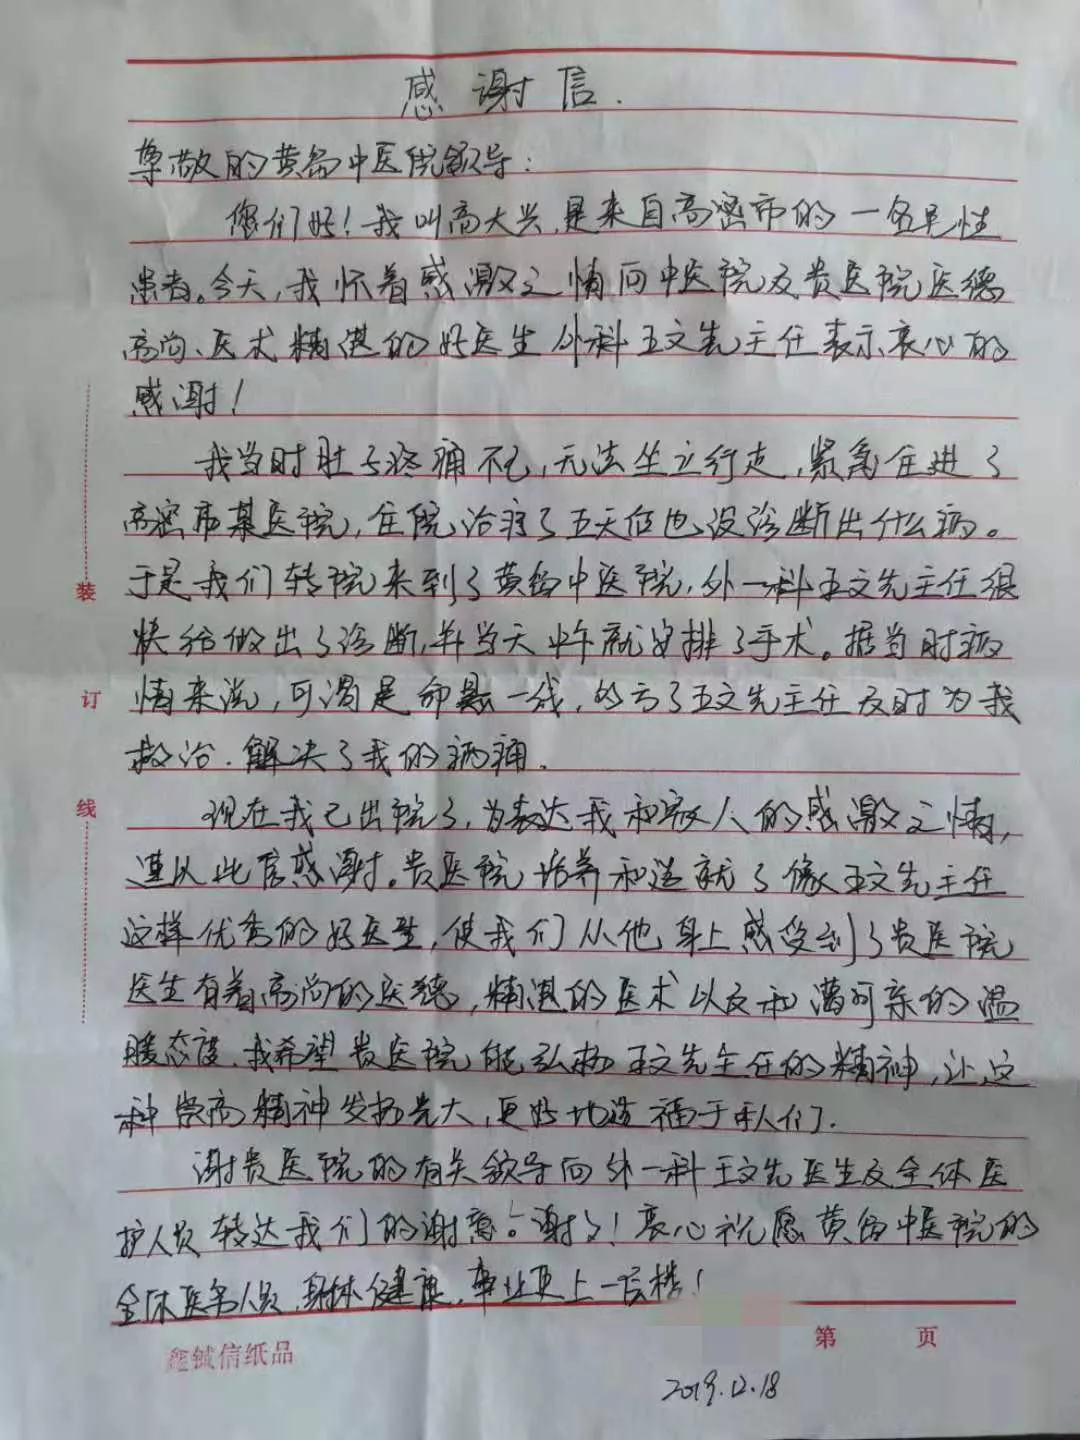 感谢信.
尊敬的黄岛中医院领导:
您们好!我叫高大兴,是来自高密市的一名男性
患者。今天,我怀着感激之情向中医院及贵医院医德
高尚、医术精湛的好医生外科王文先主任表示衷心的
感谢!
我当时肚子疼痛不已,无法坐立行走,紧急住进了
高密市某医院,住院治疗了五天但也没诊断出什么病。
于是我们转院来到了黄岛中医院,外一科王文先主任很
快给做出了诊断,并当天中午就安排了手术。据当时病
情来说,可谓是命悬一线,的亏了王文先主任及时为我
救治.解决了我的病痛.
现在我已出院了,为表达我和家人的感激之情,
谨以此信感谢。贵医院培养和造就了像王文先主任
这样优秀的好医生,使我们从他身上感受到了贵医院
医生有着高尚的医德,精湛的医术以及和蔼可亲的温
暖态度.我希望贵医院能弘扬王文先主任的精神,让这
种崇高精神发扬光大,更好地造福于病人们.
谢贵医院的有关领导向外一科王文先医生及全体医
护人员转达我们的谢意。谢了!衷心祝愿黄岛中医院的
全体医务人员,身体健康,事业更上一层楼!
装
订
线
鑫铖信纸品
第 页
2019.12.18